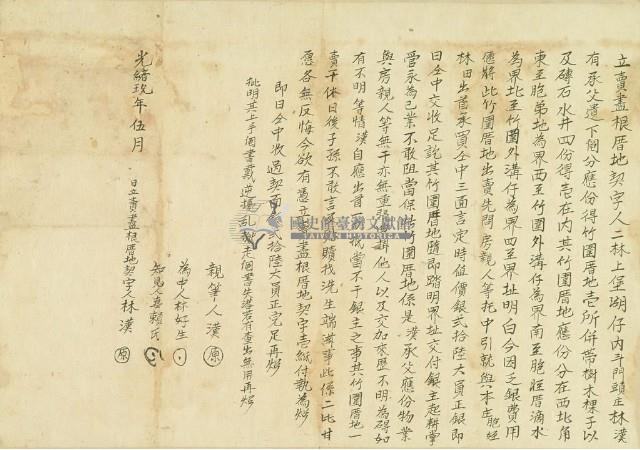 立賣盡根厝地契字人二林上堡湖仔內斗門頭庄林漢
有承父遺下個分應份得竹圍厝地壹所併帶樹木果子以
及磚石水井四份得壱在內其竹圍厝地應份分在西北角
東至胞弟地為界西至竹圍外溝仔為界南至胞姪厝滴水
為界北至竹圍外溝仔為界四至界址明白今因乏銀費用
愿將此竹圍厝地出賣先問房親人等托中引就與本庄胞姪
林田出首承買仝中三面言定時值價銀弍拾陸大員正銀即
日仝中交收足訖其竹圍厝地隨即踏明界址交付銀主起耕掌
管永為己業不敢阻當保此竹圍厝地係是漢承父應份物業
與房親人等無干亦無重張典掛他人以及交加來歷不明為碍如
有不明等情漢自應出首抵當不干銀主之事其竹圍厝地一
賣千休日後子孫不敢言及贖找洗生端滋事此係二比甘
愿各無反悔今欲有憑立賣盡根厝地契字壱紙付執為炤
即日仝中收過契面弍拾陸大員正完足再炤
批明其上手
親筆人漢 原
為中人林好生
知見人妻賴氏
日立賣盡根厝地契字人林漢 原
光緒玖年伍月
國史館臺灣文獻館
TAIWAN HISTORICA